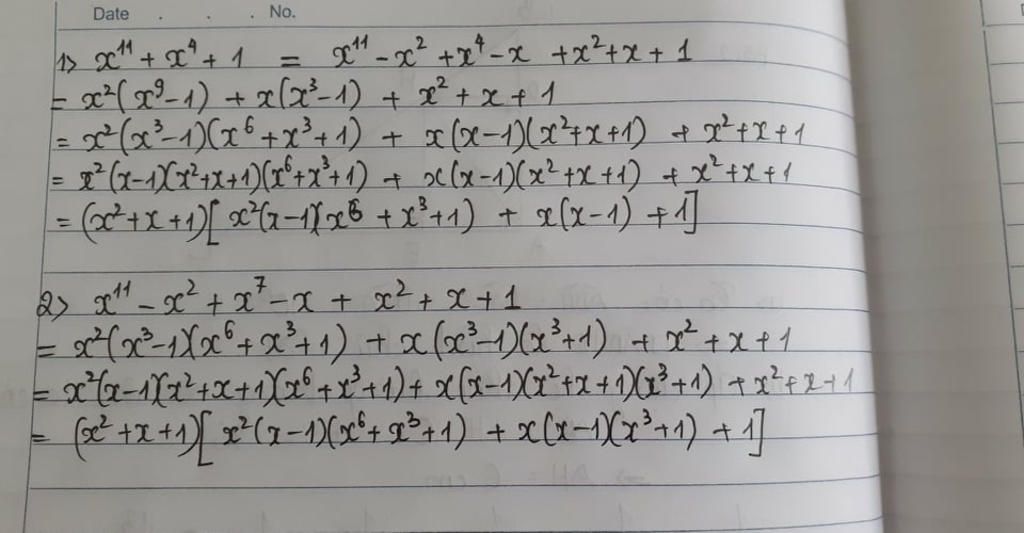 Date . . . No.
1> x¹¹ + x⁴ + 1 = x¹¹ - x² + x⁴ - x + x² + x + 1
= x²(x⁹ - 1) + x(x³ - 1) + x² + x + 1
= x²(x³ - 1)(x⁶ + x³ + 1) + x(x - 1)(x² + x + 1) + x² + x + 1
= x²(x - 1)(x² + x + 1)(x⁶ + x³ + 1) + x(x - 1)(x² + x + 1) + x² + x + 1
= (x² + x + 1)[x²(x - 1)(x⁶ + x³ + 1) + x(x - 1) + 1]
2> x¹¹ - x² + x⁷ - x + x² + x + 1
= x²(x³ - 1)(x⁶ + x³ + 1) + x(x³ - 1)(x³ + 1) + x² + x + 1
= x²(x - 1)(x² + x + 1)(x⁶ + x³ + 1) + x(x - 1)(x² + x + 1)(x³ + 1) + x² + x + 1
= (x² + x + 1)[x²(x - 1)(x⁶ + x³ + 1) + x(x - 1)(x³ + 1) + 1]